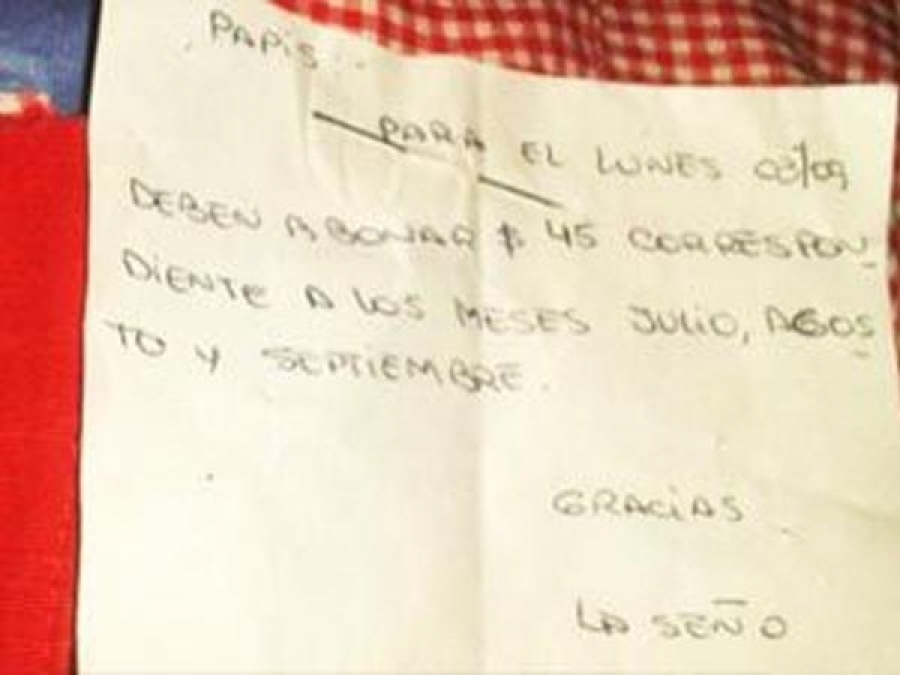 PAPIS...
PARA EL LUNES 03/09
DEBEN ABONAR $ 45 CORRESPON_
DIENTE A LOS MESES JULIO, AGOS_
TO Y SEPTIEMBRE.
GRACIAS.
LA SEÑO